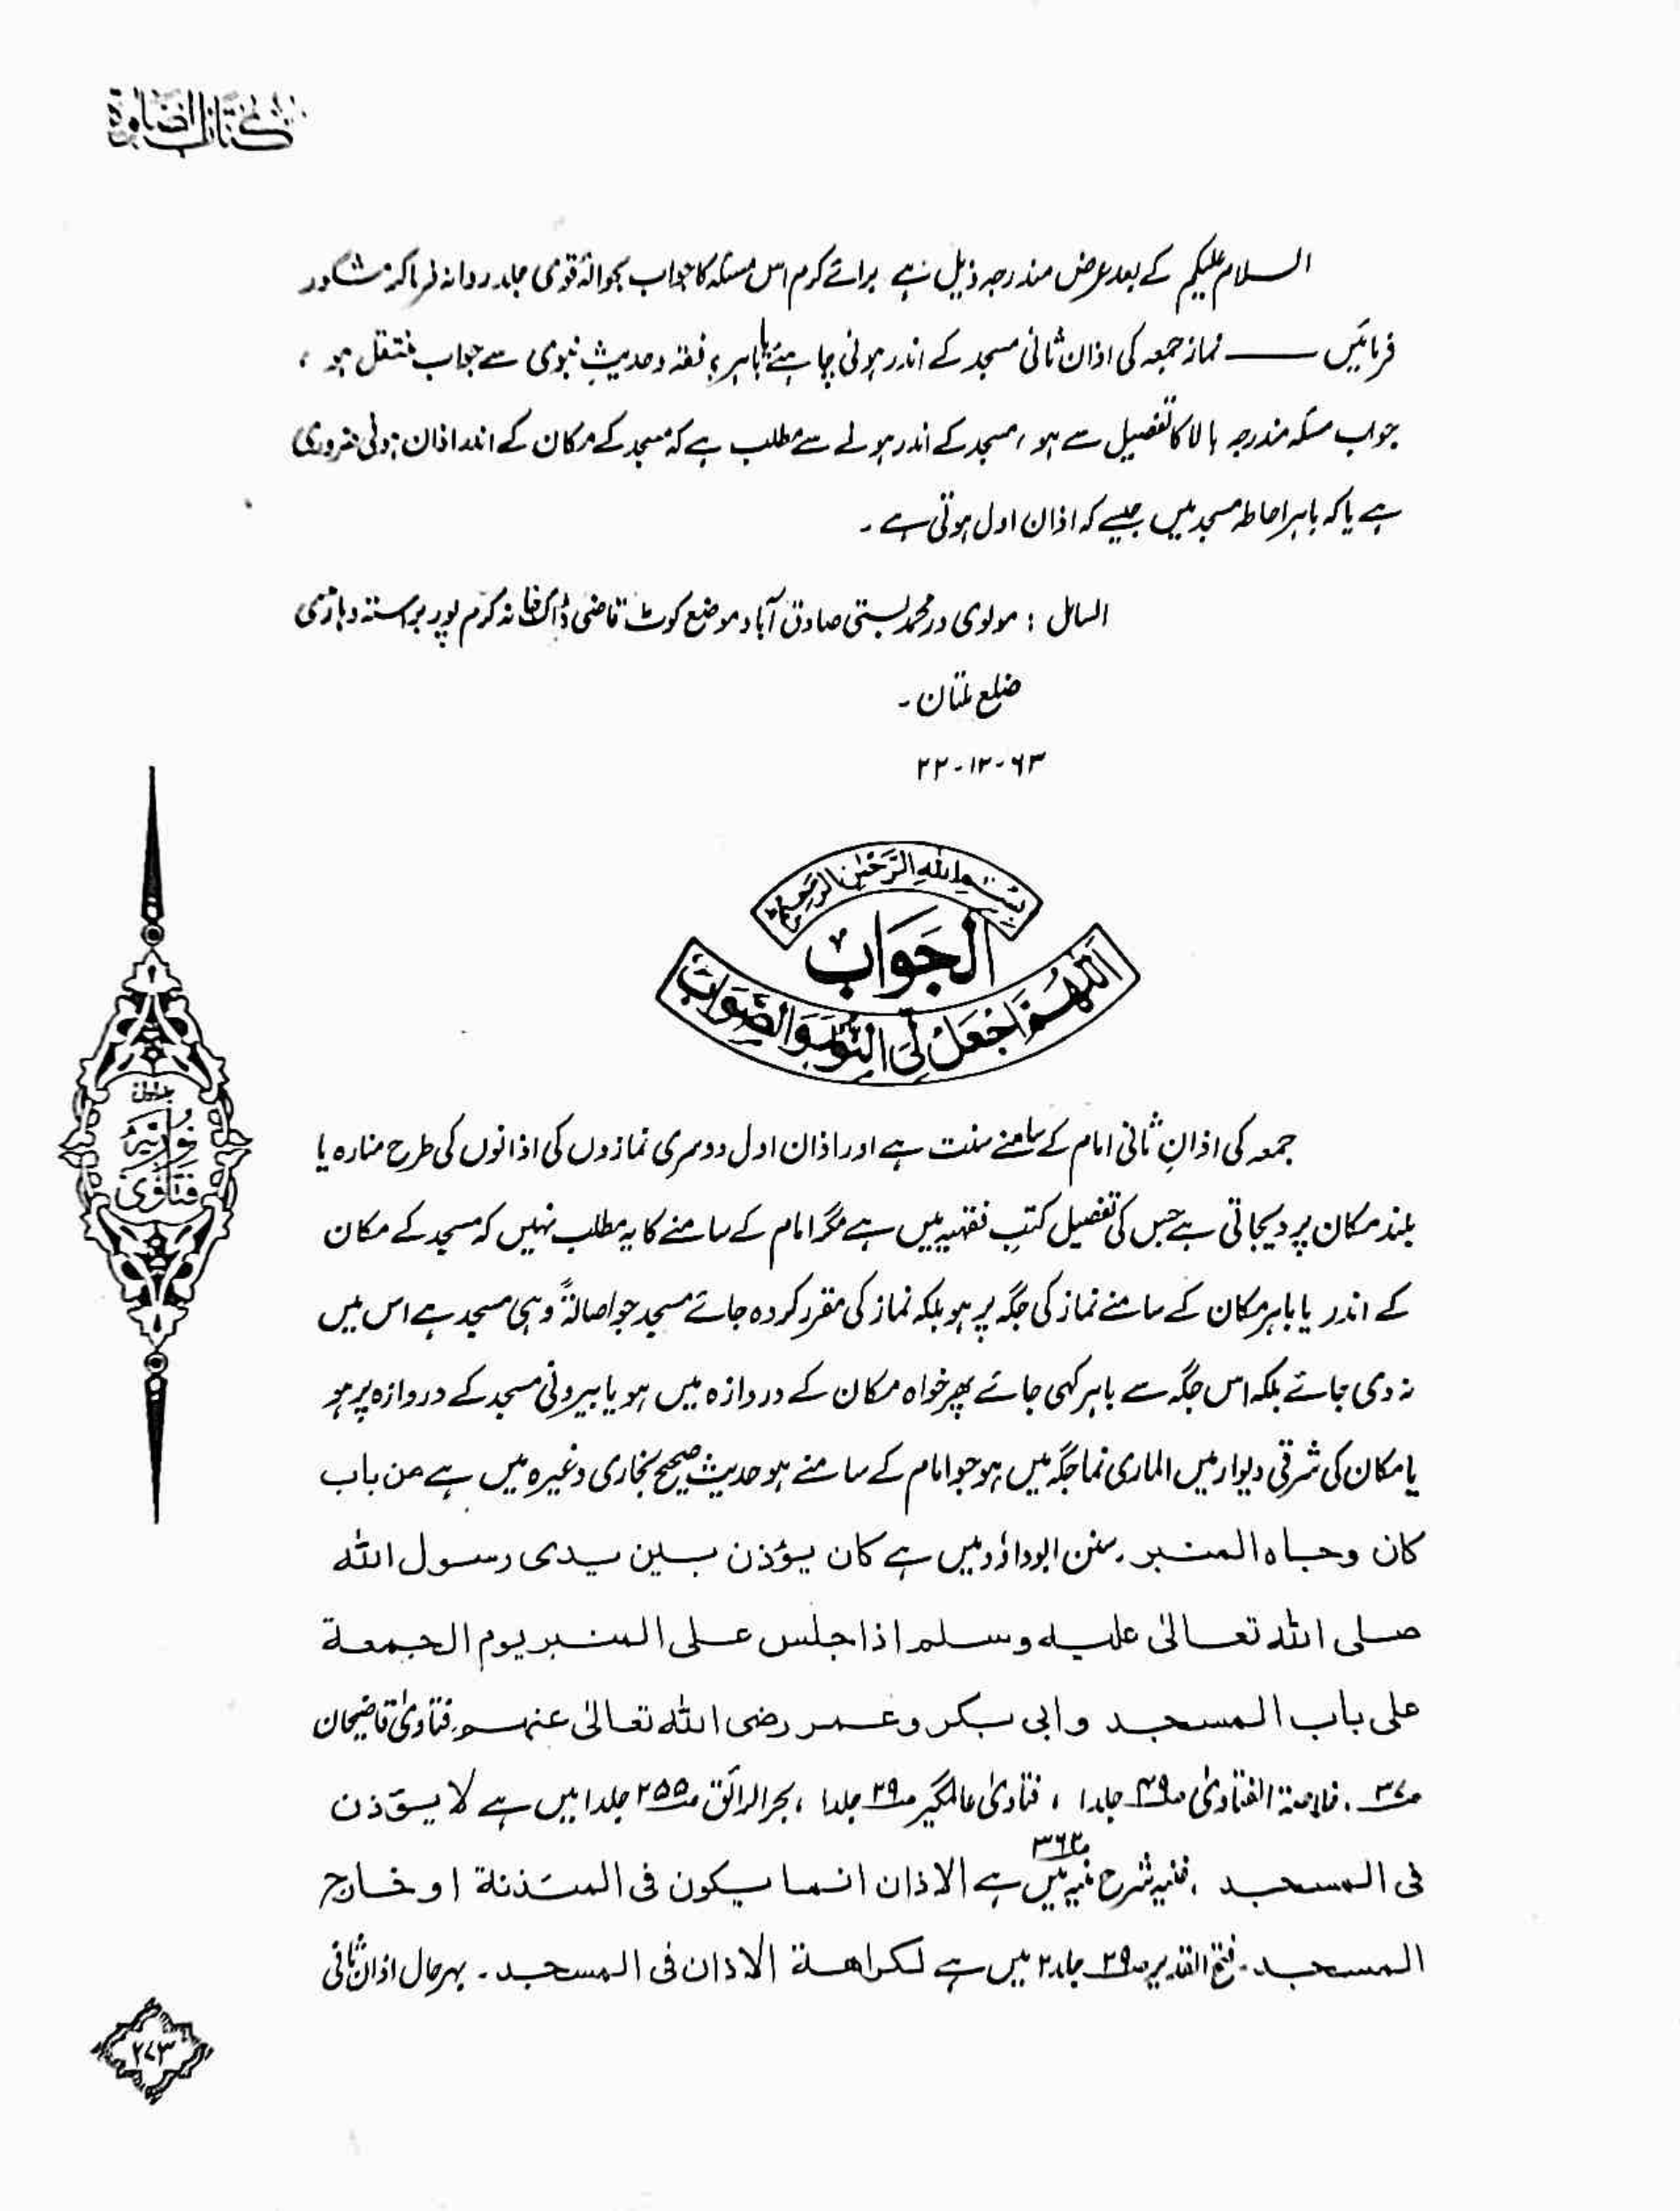 کتاب الصلوٰة
السلام علیکم کے بعد عرض مندرجہ ذیل ہے برائے کرم اس مسئلہ کا جواب بحوالۂ قوی جلد روانہ فرما کر مشکور
فرمائیں —— نماز جمعہ کی اذان ثانی مسجد کے اندر ہونی چاہئے یا باہر؟ فقہ و حدیثِ نبوی سے جواب منتقل ہو ،
جواب مسئلہ مندرجہ بالا کا تفصیل سے ہو ، مسجد کے اندر ہونے سے مطلب ہے کہ مسجد کے مکان کے اندر اذان ہونی ضروری
ہے یا کہ باہر احاطہ مسجد میں جیسے کہ اذان اول ہوتی ہے ۔
السائل : مولوی در محمد بستی صادق آباد موضع کوٹ قاضی ڈاک خانہ کرم پور براستہ وہاڑی
ضلع ملتان ۔
۲۲-۱۲-۶۳
بسم اللہ الرحمٰن الرحیم
الجواب
اللّٰهم اجعل لی النور والصواب
جمعہ کی اذانِ ثانی امام کے سامنے سنت ہے اور اذان اول دوسری نمازوں کی اذانوں کی طرح منارہ یا
بلند مکان پر دیجاتی ہے جس کی تفصیل کتبِ فقہیہ میں ہے مگر امام کے سامنے کا یہ مطلب نہیں کہ مسجد کے مکان
کے اندر یا باہر مکان کے سامنے نماز کی جگہ پر ہو بلکہ نماز کی مقرر کردہ جائے مسجد جو اصالۃً وہی مسجد ہے اس میں
نہ دی جائے بلکہ اس جگہ سے باہر کہی جائے پھر خواہ مکان کے دروازہ میں ہو یا بیرونی مسجد کے دروازہ پر ہو
یا مکان کی شرقی دیوار میں الماری نما جگہ میں ہو جو امام کے سامنے ہو حدیث صحیح بخاری وغیرہ میں ہے من باب
کان وجاہ المنبر . سنن ابوداؤد میں ہے کان یؤذن بین یدی رسول اللہ
صلی اللہ تعالیٰ علیہ وسلم اذا جلس علی المنبر یوم الجمعة
علی باب المسجد وابی بکر وعمر رضی اللہ تعالیٰ عنہم ، فتاویٰ قاضیخان
صـ۳۷ ، خلاصۃ الفتاویٰ صـ۴۹ جلد۱ ، فتاویٰ عالمگیر صـ۲۹ جلد۱ ، بحر الرائق صـ۲۵۵ جلد۱ میں ہے لا یؤذن
فی المسجد ، غنیہ شرح منیہ صـ۳۶۲ میں ہے الاذان انما یکون فی المئذنة او خارج
المسجد ۔ فتح القدیر صـ۲۹ جلد۲ میں ہے لکراھة الاذان فی المسجد ۔ بہرحال اذان ثانی
جلد اول
فتاویٰ نوریہ
۲۷۳